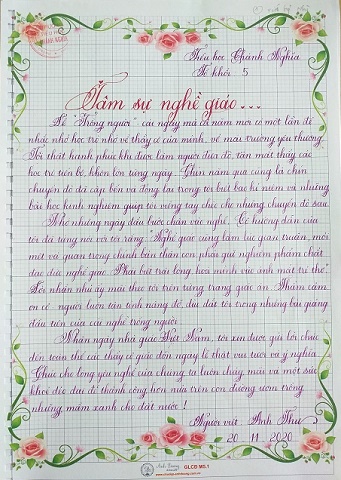 Tiểu học Chánh Nghĩa
Tổ khối 5
Tâm sự nghề giáo...
Lễ "Trồng người" cái ngày mà cả năm mới có một lần để
nhắc nhở học trò nhớ về thầy cô của mình, về mái trường yêu thương.
Tôi thật hạnh phúc khi được làm người đưa đò, tận mắt thấy các
học trò tiến bộ, khôn lớn từng ngày. Chín năm qua cũng là chín
chuyến đò đã cập bến và đọng lại trong tôi biết bao kỉ niệm và những
bài học kinh nghiệm giúp tôi vững tay chèo cho những chuyến đò sau.
Nhớ những ngày đầu bước chân vào nghề, Cô hướng dẫn của
tôi đã từng nói với tôi rằng "Nghề giáo cũng lắm lúc gian truân, mỗi
một vị quan trọng chính bản thân con phải giữ nghiêm phẩm chất
đạo đức nghề giáo. Phải biết trải lòng hòa mình vào ánh mắt trẻ thơ".
Lời nhắn nhủ ấy mãi theo tôi trên từng trang giáo án. Thầm cảm
ơn cô người luôn tận tình nâng đỡ, dìu dắt tôi trong những bài giảng
đầu tiên của cái nghề trồng người.
Nhân ngày nhà giáo Việt Nam, tôi xin được gửi lời chúc
đến toàn thể các thầy cô giáo đón ngày lễ thật vui tươi và ý nghĩa.
Chúc cho lòng yêu nghề của chúng ta luôn cháy mãi và một sức
khoẻ dẻo dai để thành công hơn nữa trên con đường ươm trồng
những mầm xanh cho đất nước!
Người viết: Anh Thư
20 - 11 - 2020
GLCD MS.1